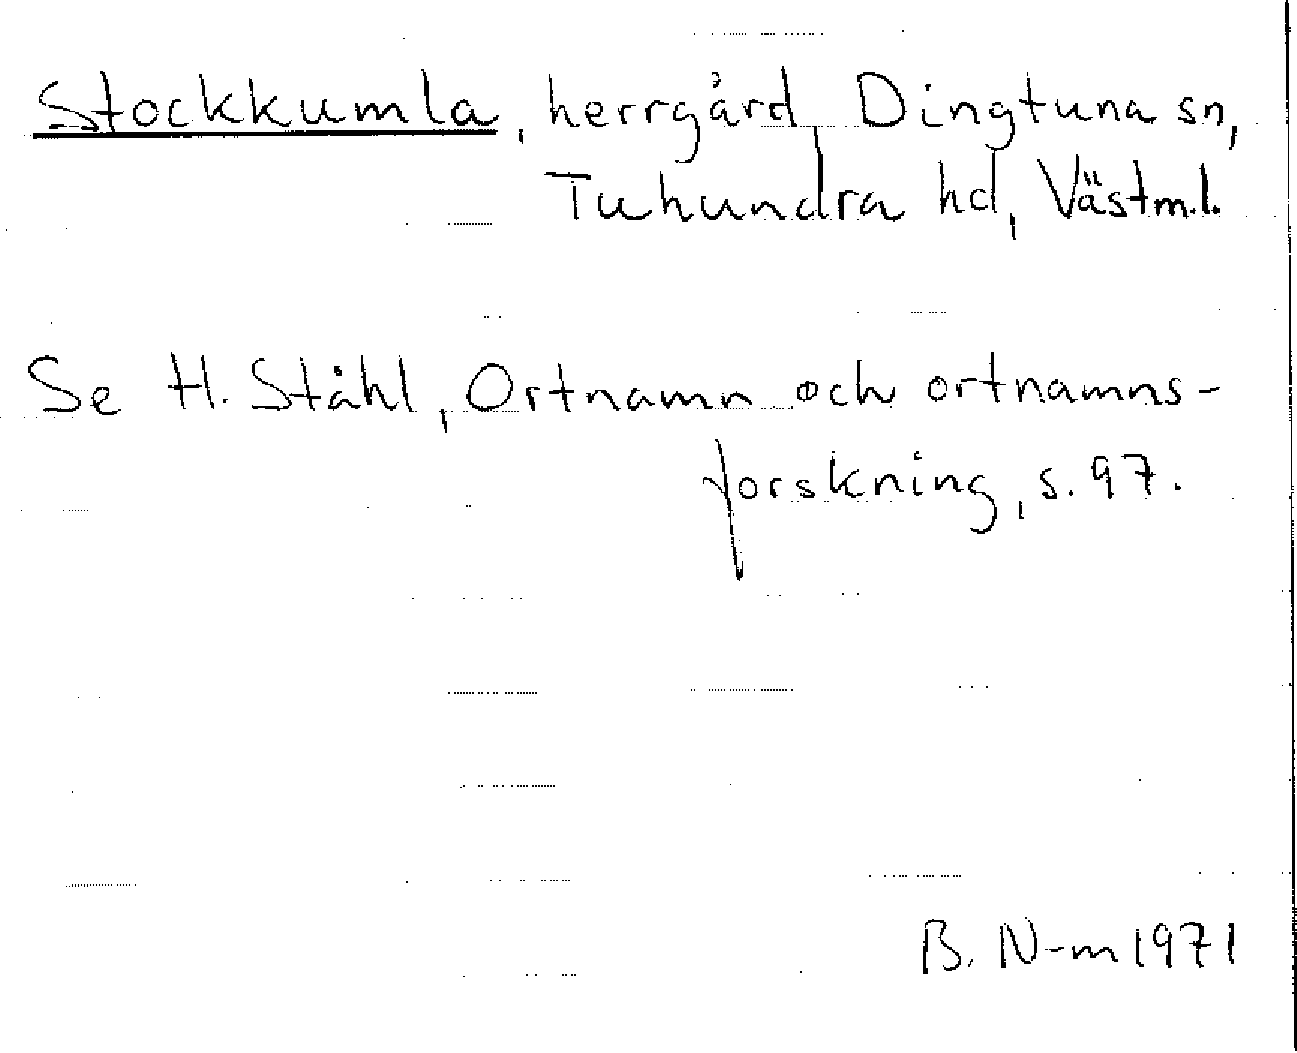 Stockkumla, herrgård, Dingtuna sn,
Tuhundra hd, Västm.l.
Se H. Ståhl, Ortnamn och ortnamns-
forskning, s. 97.
B. N-m 1971